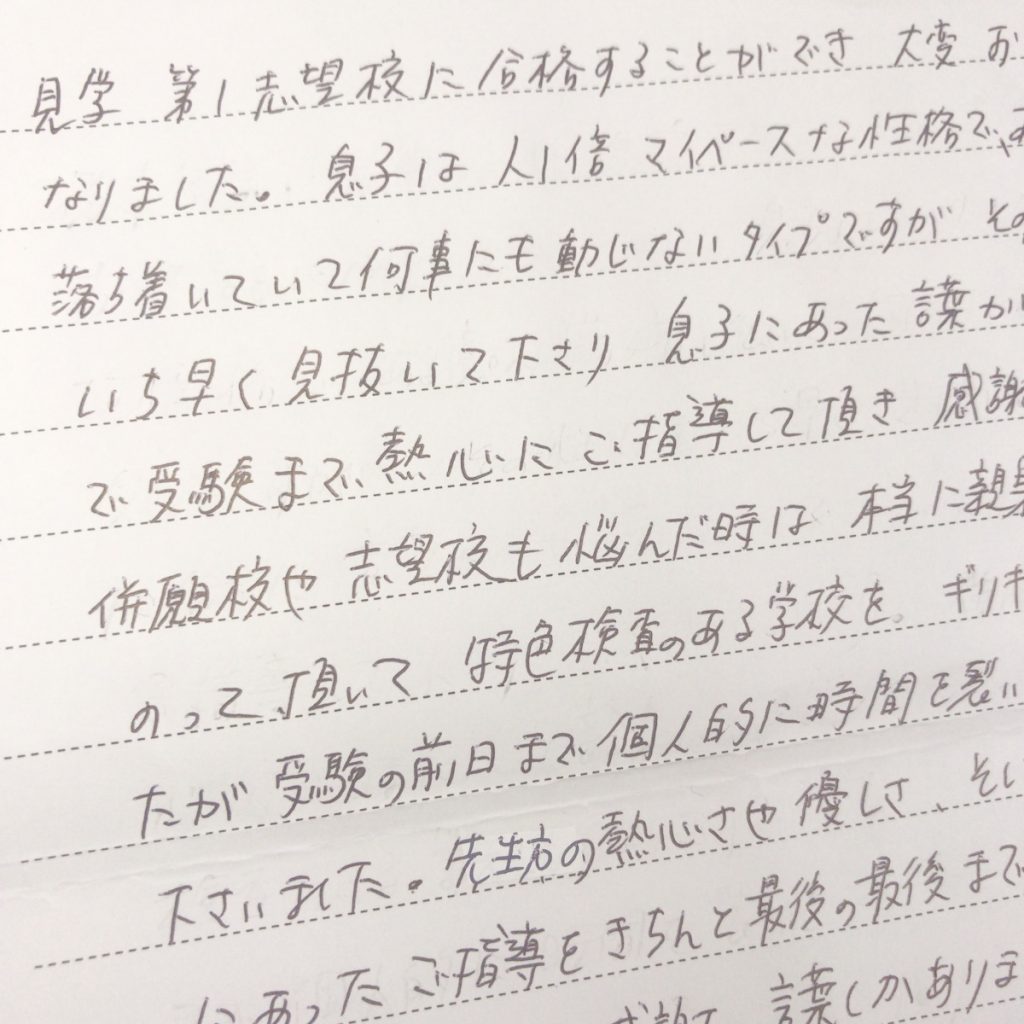 見学 第1志望校に合格することができ 大変 お
なりました。息子は 人1倍 マイペースな性格で、
落ち着いていて何事にも動じないタイプですが その
いち早く見抜いて下さり 息子にあった言葉か
で受験まで、熱心にご指導して頂き 感謝
併願校や 志望校も 悩んだ時は 本当に親
のって頂いて 特色検査のある学校を。ギリギ
たが 受験の前日まで個人的に時間を裂い
下さいました。先生方の熱心さや優しさ、そし
にあったご指導をきちんと最後の最後まで
言葉しかありま